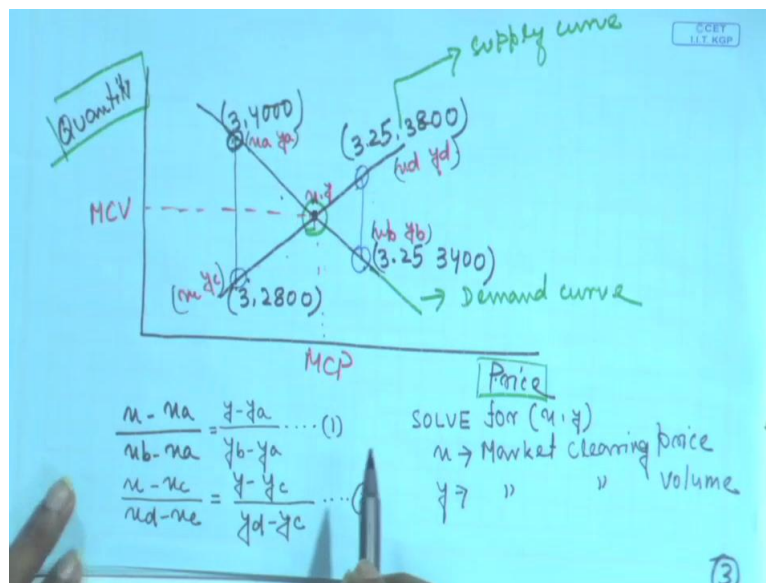 CCET
I.I.T. KGP
supply curve
Quantity
(3,4000)
(xa ya)
(3.25,3800)
(xd yd)
x,y
MCV
(xb yb)
(3.25 3400)
(xc yc)
(3,2800)
Demand curve
MCP
Price
x - xa / xb - xa = y - ya / yb - ya ..... (1)
x - xc / xd - xc = y - yc / yd - yc .....
SOLVE for (x,y)
x → Market clearing price
y → " " volume
3